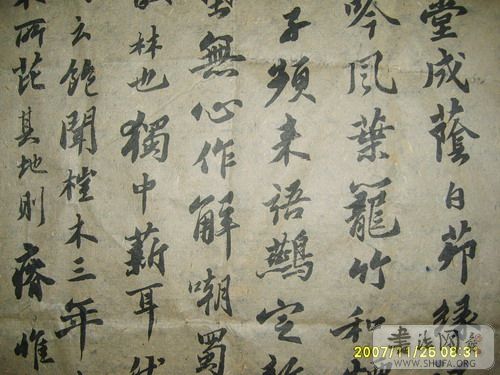 堂成蔭白茆緣
吟風葉籠竹和
子頻来語鷰定新
無心作解嘲蜀
林也獨中薪耳然
云飽聞榿木三年
所芘其地則瘠惟
书法网
WWW.SHUFA.ORG
2007/11/25 08:31